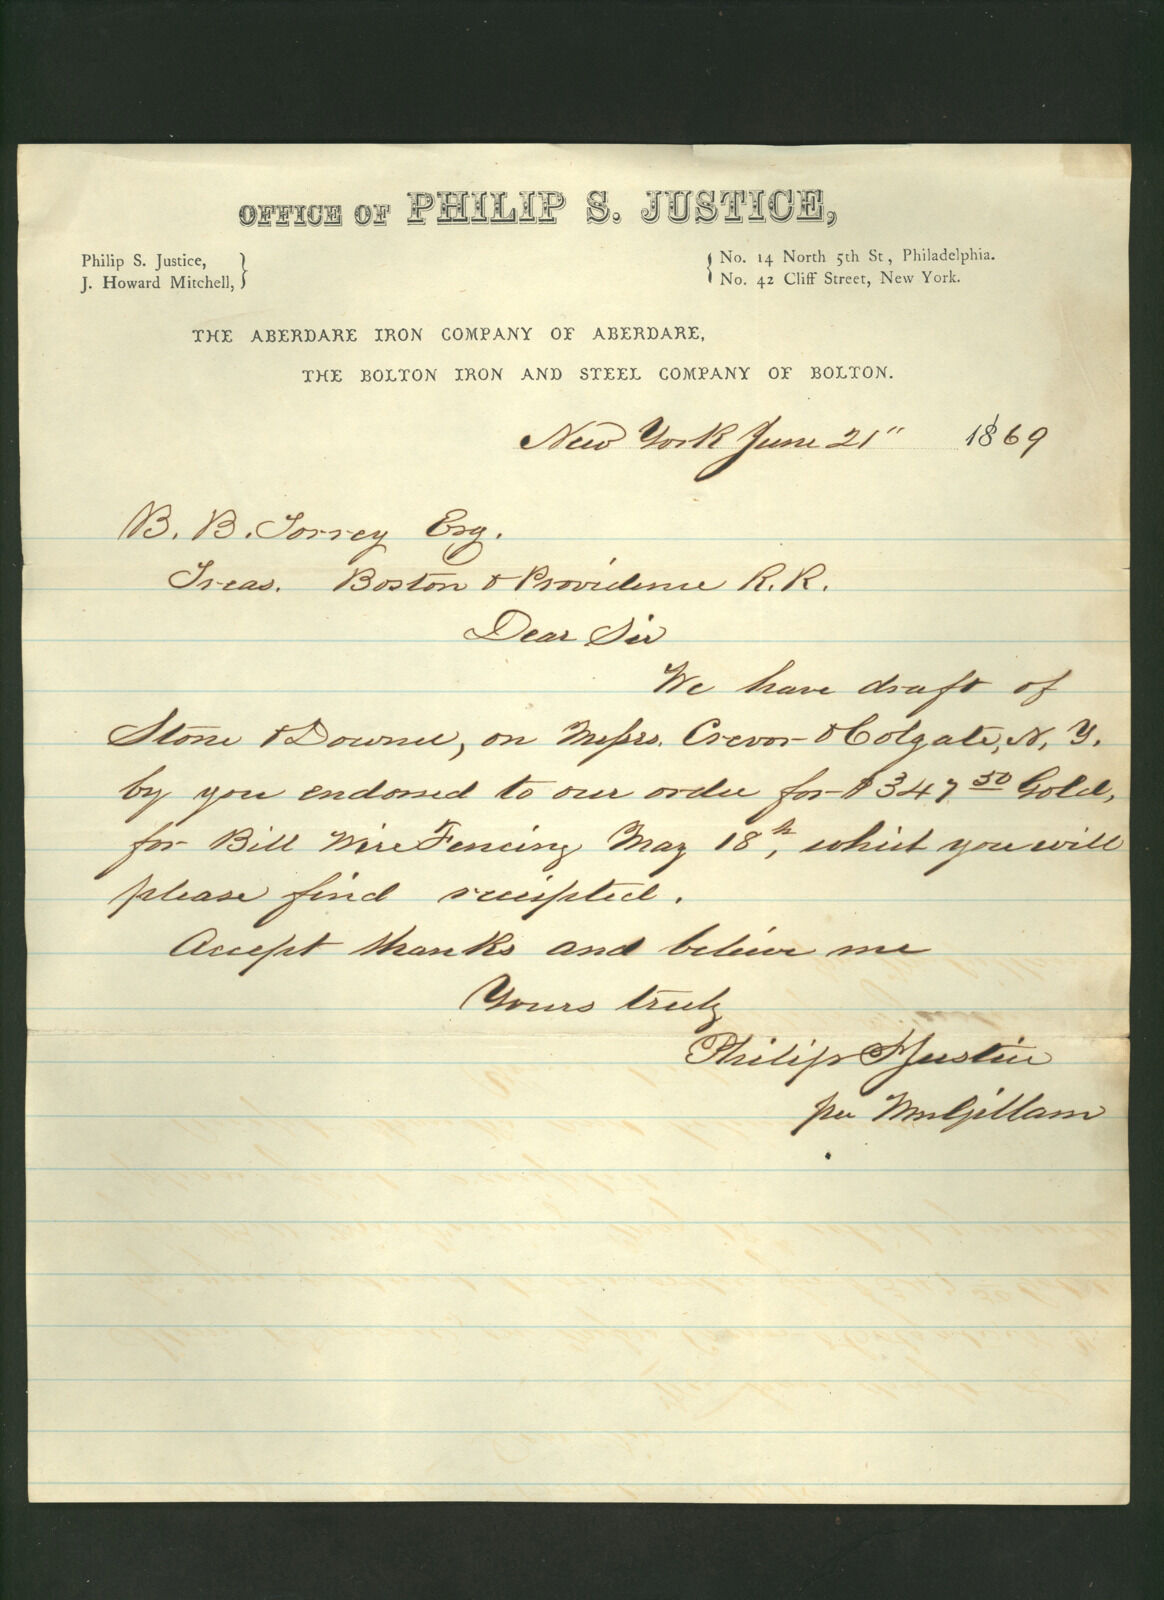 OFFICE OF PHILIP S. JUSTICE,
Philip S. Justice,
J. Howard Mitchell,
No. 14 North 5th St, Philadelphia.
No. 42 Cliff Street, New York.
THE ABERDARE IRON COMPANY OF ABERDARE,
THE BOLTON IRON AND STEEL COMPANY OF BOLTON.
New York June 21" 1869
B. B. Torrey Esq.
Treas. Boston & Providence R. R.
Dear Sir
We have draft of
Stone & Downer, on Messrs. Trevor & Colgate, N. Y.
by you endorsed to our order for $347 50 Gold,
for Bill Wire Fencing May 18th, which you will
please find receipted.
Accept thanks and believe me
Yours truly
Philip S Justice
per Wm Gillam